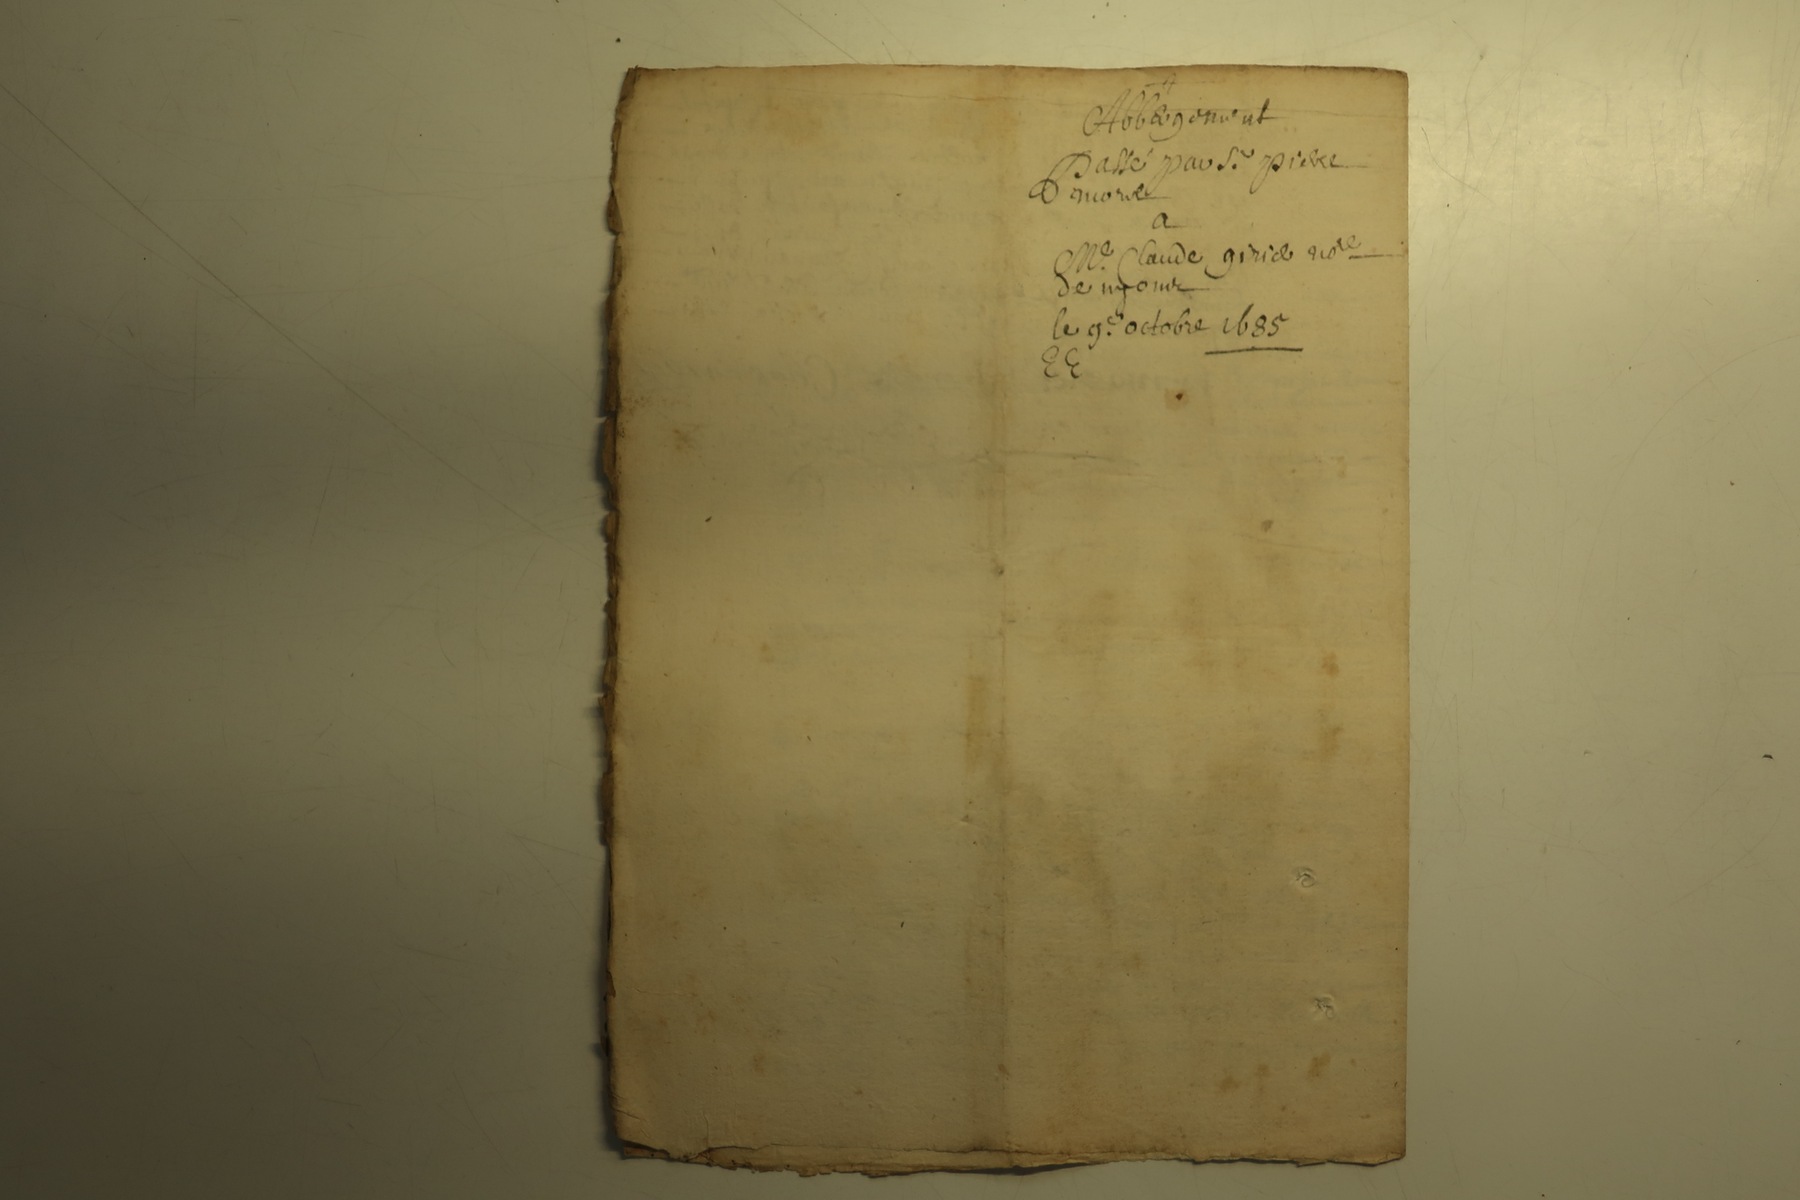 Abbergement
Passé par Sr. pierre
morel
a
Me. Claude girie nore
de
le 9e. octobre 1685
EE